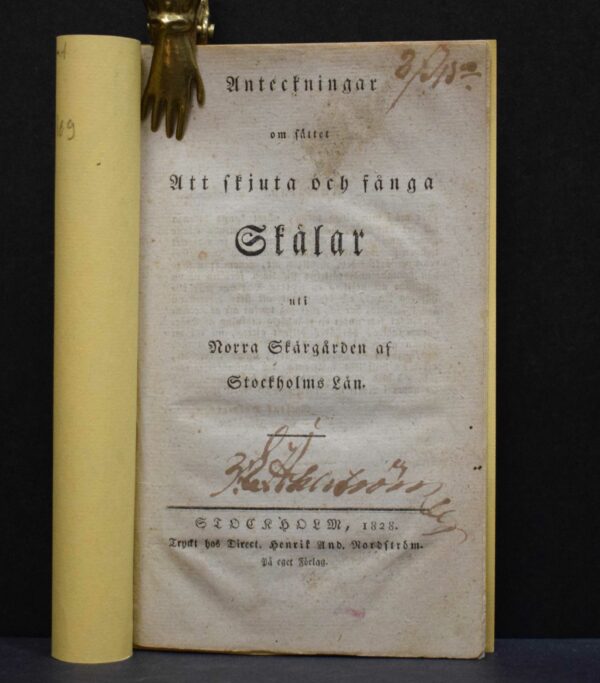 Anteckningar
om sättet
Att skjuta och fånga
Skälar
uti
Norra Skärgården af
Stockholms Län.
STOCKHOLM, 1828.
Tryckt hos Direct. Henrik And. Nordström.
På eget Förlag.